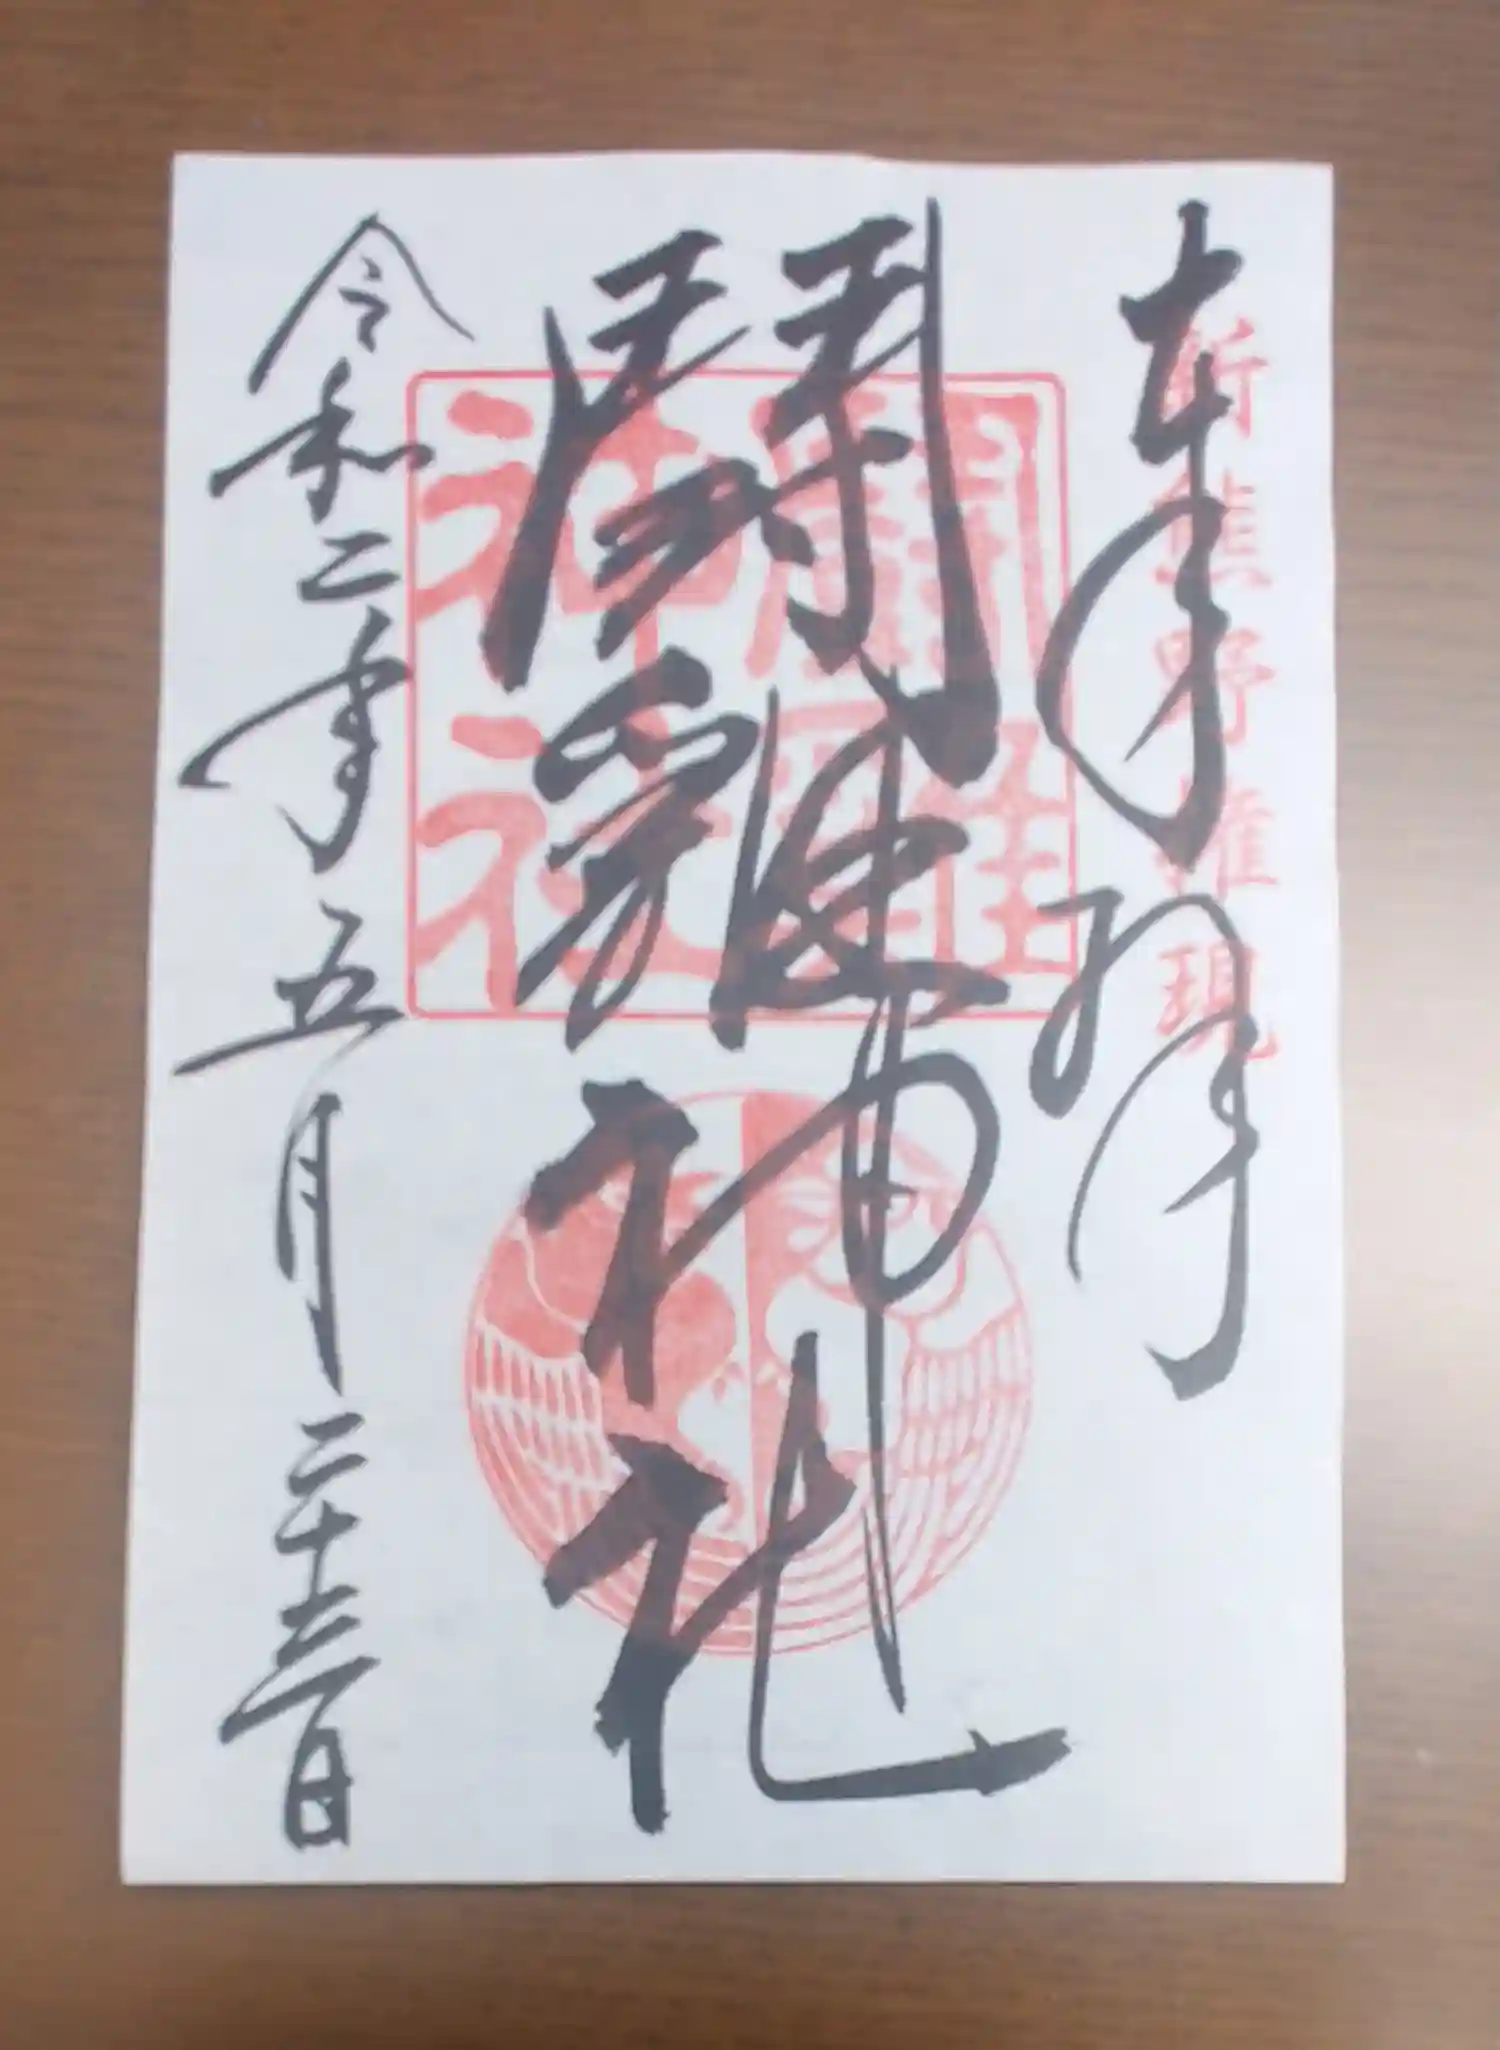 奉拝
新熊野権現
闘雞神社
闘雞神社
令和二年五月二十三日